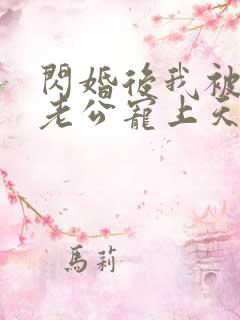 閃婚後我被
老公寵上天
馬莉